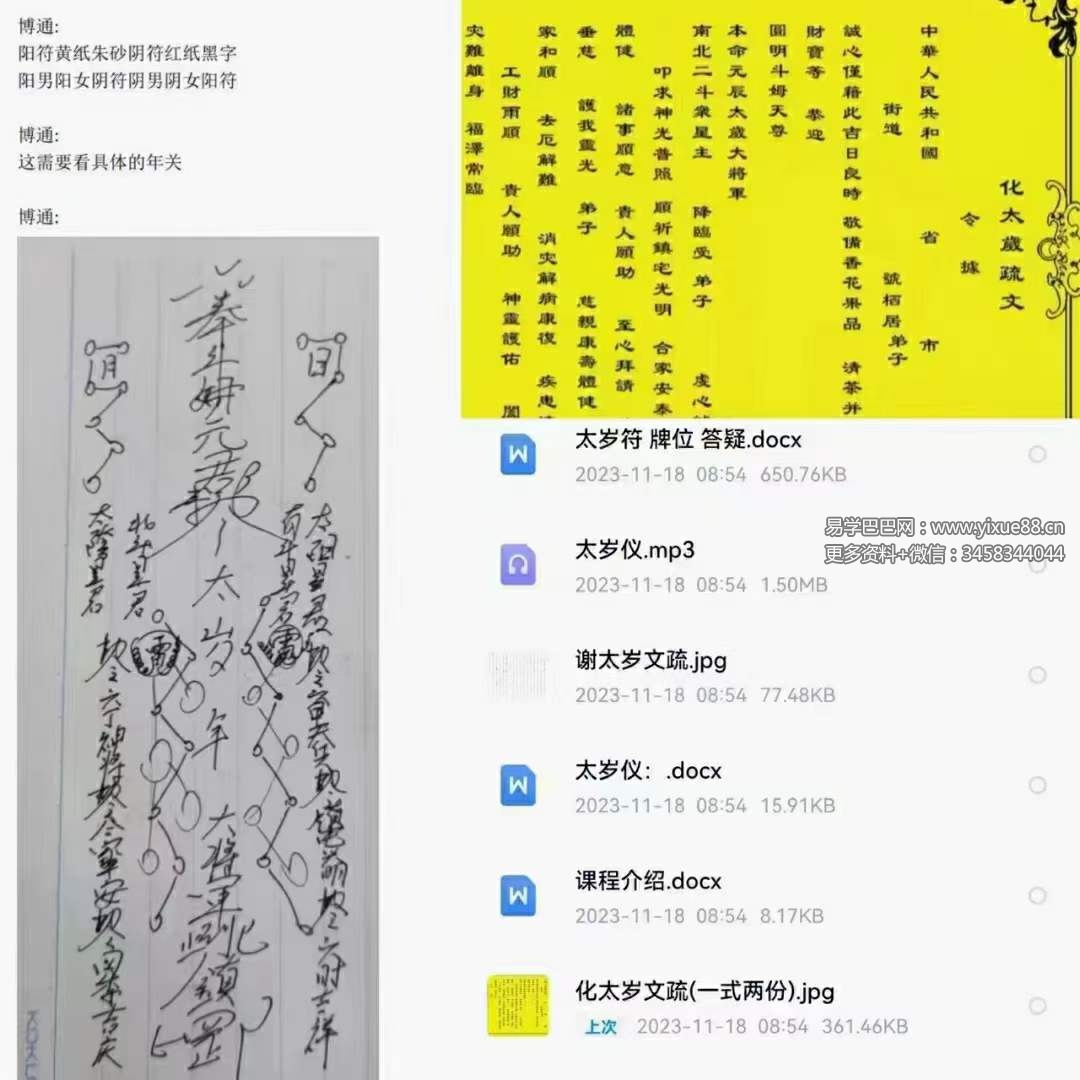 博通:
阳符黄纸朱砂阴符红纸黑字
阳男阳女阴符阴男阴女阳符
博通:
这需要看具体的年关
博通:
日
太阳星君
南斗星君
奉斗姆元君
太岁年大将军
月
北斗星君
太阴星君
六时吉祥
化太歲疏文
令據
中華人民共和國 省 市
街道 號栖居弟子
誠心僅藉此吉日良時 敬備香花果品 清茶并
財寶等 恭迎
圓明斗姆天尊
本命元辰太歲大將軍
南北二斗衆星主 降臨受 弟子 虔心
叩求神光普照 順祈鎮宅光明 合家安泰
體健 諸事順意 貴人願助 至心拜請
垂慈 護我靈光 弟子 慈親康壽體健
家和順 去厄解難 消灾解病康復 疾患
工財雨順 貴人願助 神靈護佑 闔
灾難離身 福澤常臨
太岁符 牌位 答疑.docx
2023-11-18 08:54 650.76KB
易学巴巴网：www.yixue88.cn
更多资料+微信：3458344044
太岁仪.mp3
2023-11-18 08:54 1.50MB
谢太岁文疏.jpg
2023-11-18 08:54 77.48KB
太岁仪：.docx
2023-11-18 08:54 15.91KB
课程介绍.docx
2023-11-18 08:54 8.17KB
化太岁文疏(一式两份).jpg
上次 2023-11-18 08:54 361.46KB